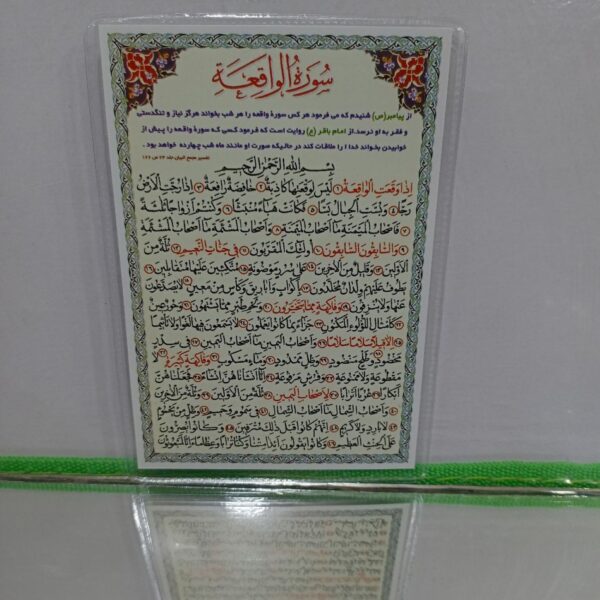 سورة الواقعة
از پیامبر(ص) شنیدم که می فرمود هر کس سورهٔ واقعه را هر شب بخواند هرگز نیاز و تنگدستی
و فقر به او نرسد. از امام باقر (ع) روایت است که فرمود کسی که سورهٔ واقعه را پیش از
خوابیدن بخواند خدا را ملاقات کند در حالیکه صورت او مانند ماه شب چهارده خواهد بود.
تفسیر مجمع البیان جلد ۲۴
بسم الله الرحمن الرحيم
اذا وقعت الواقعة ۱ ليس لوقعتها كاذبة ۲ خافضة رافعة ۳ اذا رجت الارض
رجا ۴ وبست الجبال بسا ۵ فكانت هباء منبثا ۶ وكنتم ازواجا ثلثة
۷ فاصحاب الميمنة ما اصحاب الميمنة ۸ واصحاب المشئمة ما اصحاب المشئمة
۹ والسابقون السابقون ۱۰ اولئك المقربون ۱۱ في جنات النعيم ۱۲ ثلة من
الاولين ۱۳ وقليل من الاخرين ۱۴ على سرر موضونة ۱۵ متكئين عليها متقابلين ۱۶
يطوف عليهم ولدان مخلدون ۱۷ باكواب واباريق وكأس من معين ۱۸ لا يصدعون
عنها ولا ينزفون ۱۹ وفاكهة مما يتخيرون ۲۰ ولحم طير مما يشتهون ۲۱ وحور عين
۲۲ كامثال اللؤلؤ المكنون ۲۳ جزاء بما كانوا يعملون ۲۴ لا يسمعون فيها لغوا ولا تأثيما
۲۵ الا قيلا سلاما سلاما ۲۶ واصحاب اليمين ما اصحاب اليمين ۲۷ في سدر
مخضود ۲۸ وطلح منضود ۲۹ وظل ممدود ۳۰ وماء مسكوب ۳۱ وفاكهة كثيرة ۳۲ لا
مقطوعة ولا ممنوعة ۳۳ وفرش مرفوعة ۳۴ انا انشأناهن انشاء ۳۵ فجعلناهن
ابكارا ۳۶ عربا اترابا ۳۷ لاصحاب اليمين ۳۸ ثلة من الاولين ۳۹ وثلة من الاخرين
۴۰ واصحاب الشمال ما اصحاب الشمال ۴۱ في سموم وحميم ۴۲ وظل من يحموم ۴۳
لا بارد ولا كريم ۴۴ انهم كانوا قبل ذلك مترفين ۴۵ وكانوا يصرون
على الحنث العظيم ۴۶ وكانوا يقولون ائذا متنا وكنا ترابا وعظاما ائنا لمبعوثون